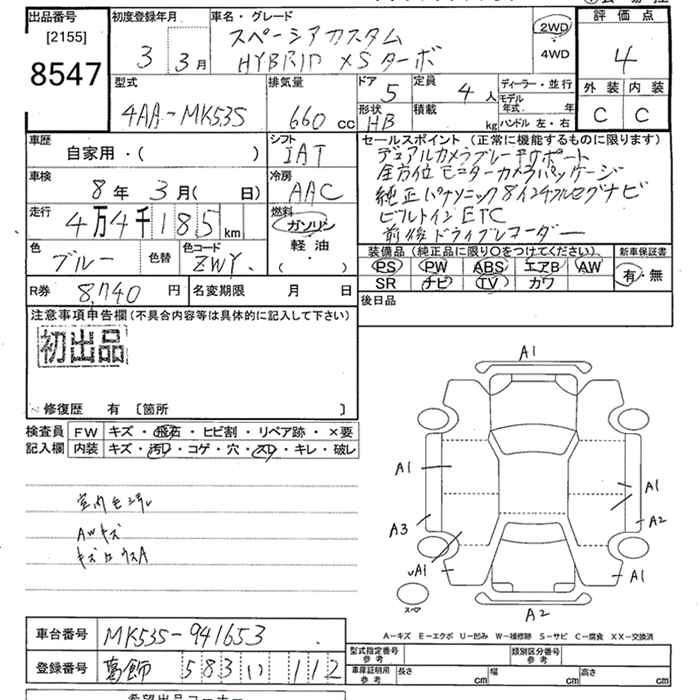 出品番号
[2155]
8547
初度登録年月
3 3月
車名・グレード
スペーシアカスタム
HYBRID XSターボ
2WD
4WD
評価点
4
外装 内装
C C
型式
4AA-MK53S
排気量
660 cc
ドア
5
定員
4 人
形状
HB
積載
kg
ディーラー・並行
モデル年式 年
ハンドル 左・右
車歴
自家用・( )
シフト
IAT
車検
8年 3月( 日)
冷房
AAC
走行
4万4千185 km
燃料
ガソリン
軽油
( ・ )
色
ブルー
色替
色コード
ZWY
R券 8,740 円
名変期限 月 日
セールスポイント (正常に機能するものに限ります)
デュアルカメラブレーキサポート
全方位モニターカメラパッケージ
純正パナソニック8インチフルセグナビ
ビルトインETC
前後ドライブレコーダー
装備品 (純正品に限り○をつけてください)
新車保証書
PS PW ABS エアB AW
SR ナビ TV カワ
有・無
後日品
注意事項申告欄(不具合内容等は具体的に記入して下さい)
初出品
修復歴 有 〔箇所 〕
検査員記入欄
FW キズ・飛石・ヒビ割・リペア跡・×要
内装 キズ・汚レ・コゲ・穴・スレ・キレ・破レ
AWキズ
A1
A1
A3
A1
A1
A2
A1
A2
スペア
A-キズ E-エクボ U-凹み W-補修跡 S-サビ C-腐食 XX-交換済
車台番号 MK53S-941653
登録番号 葛飾 583 い 112
型式指定番号 参考
類別区分番号 参考
車庫証明用 参考
長さ cm 幅 cm 高さ cm
希望出品コーナー